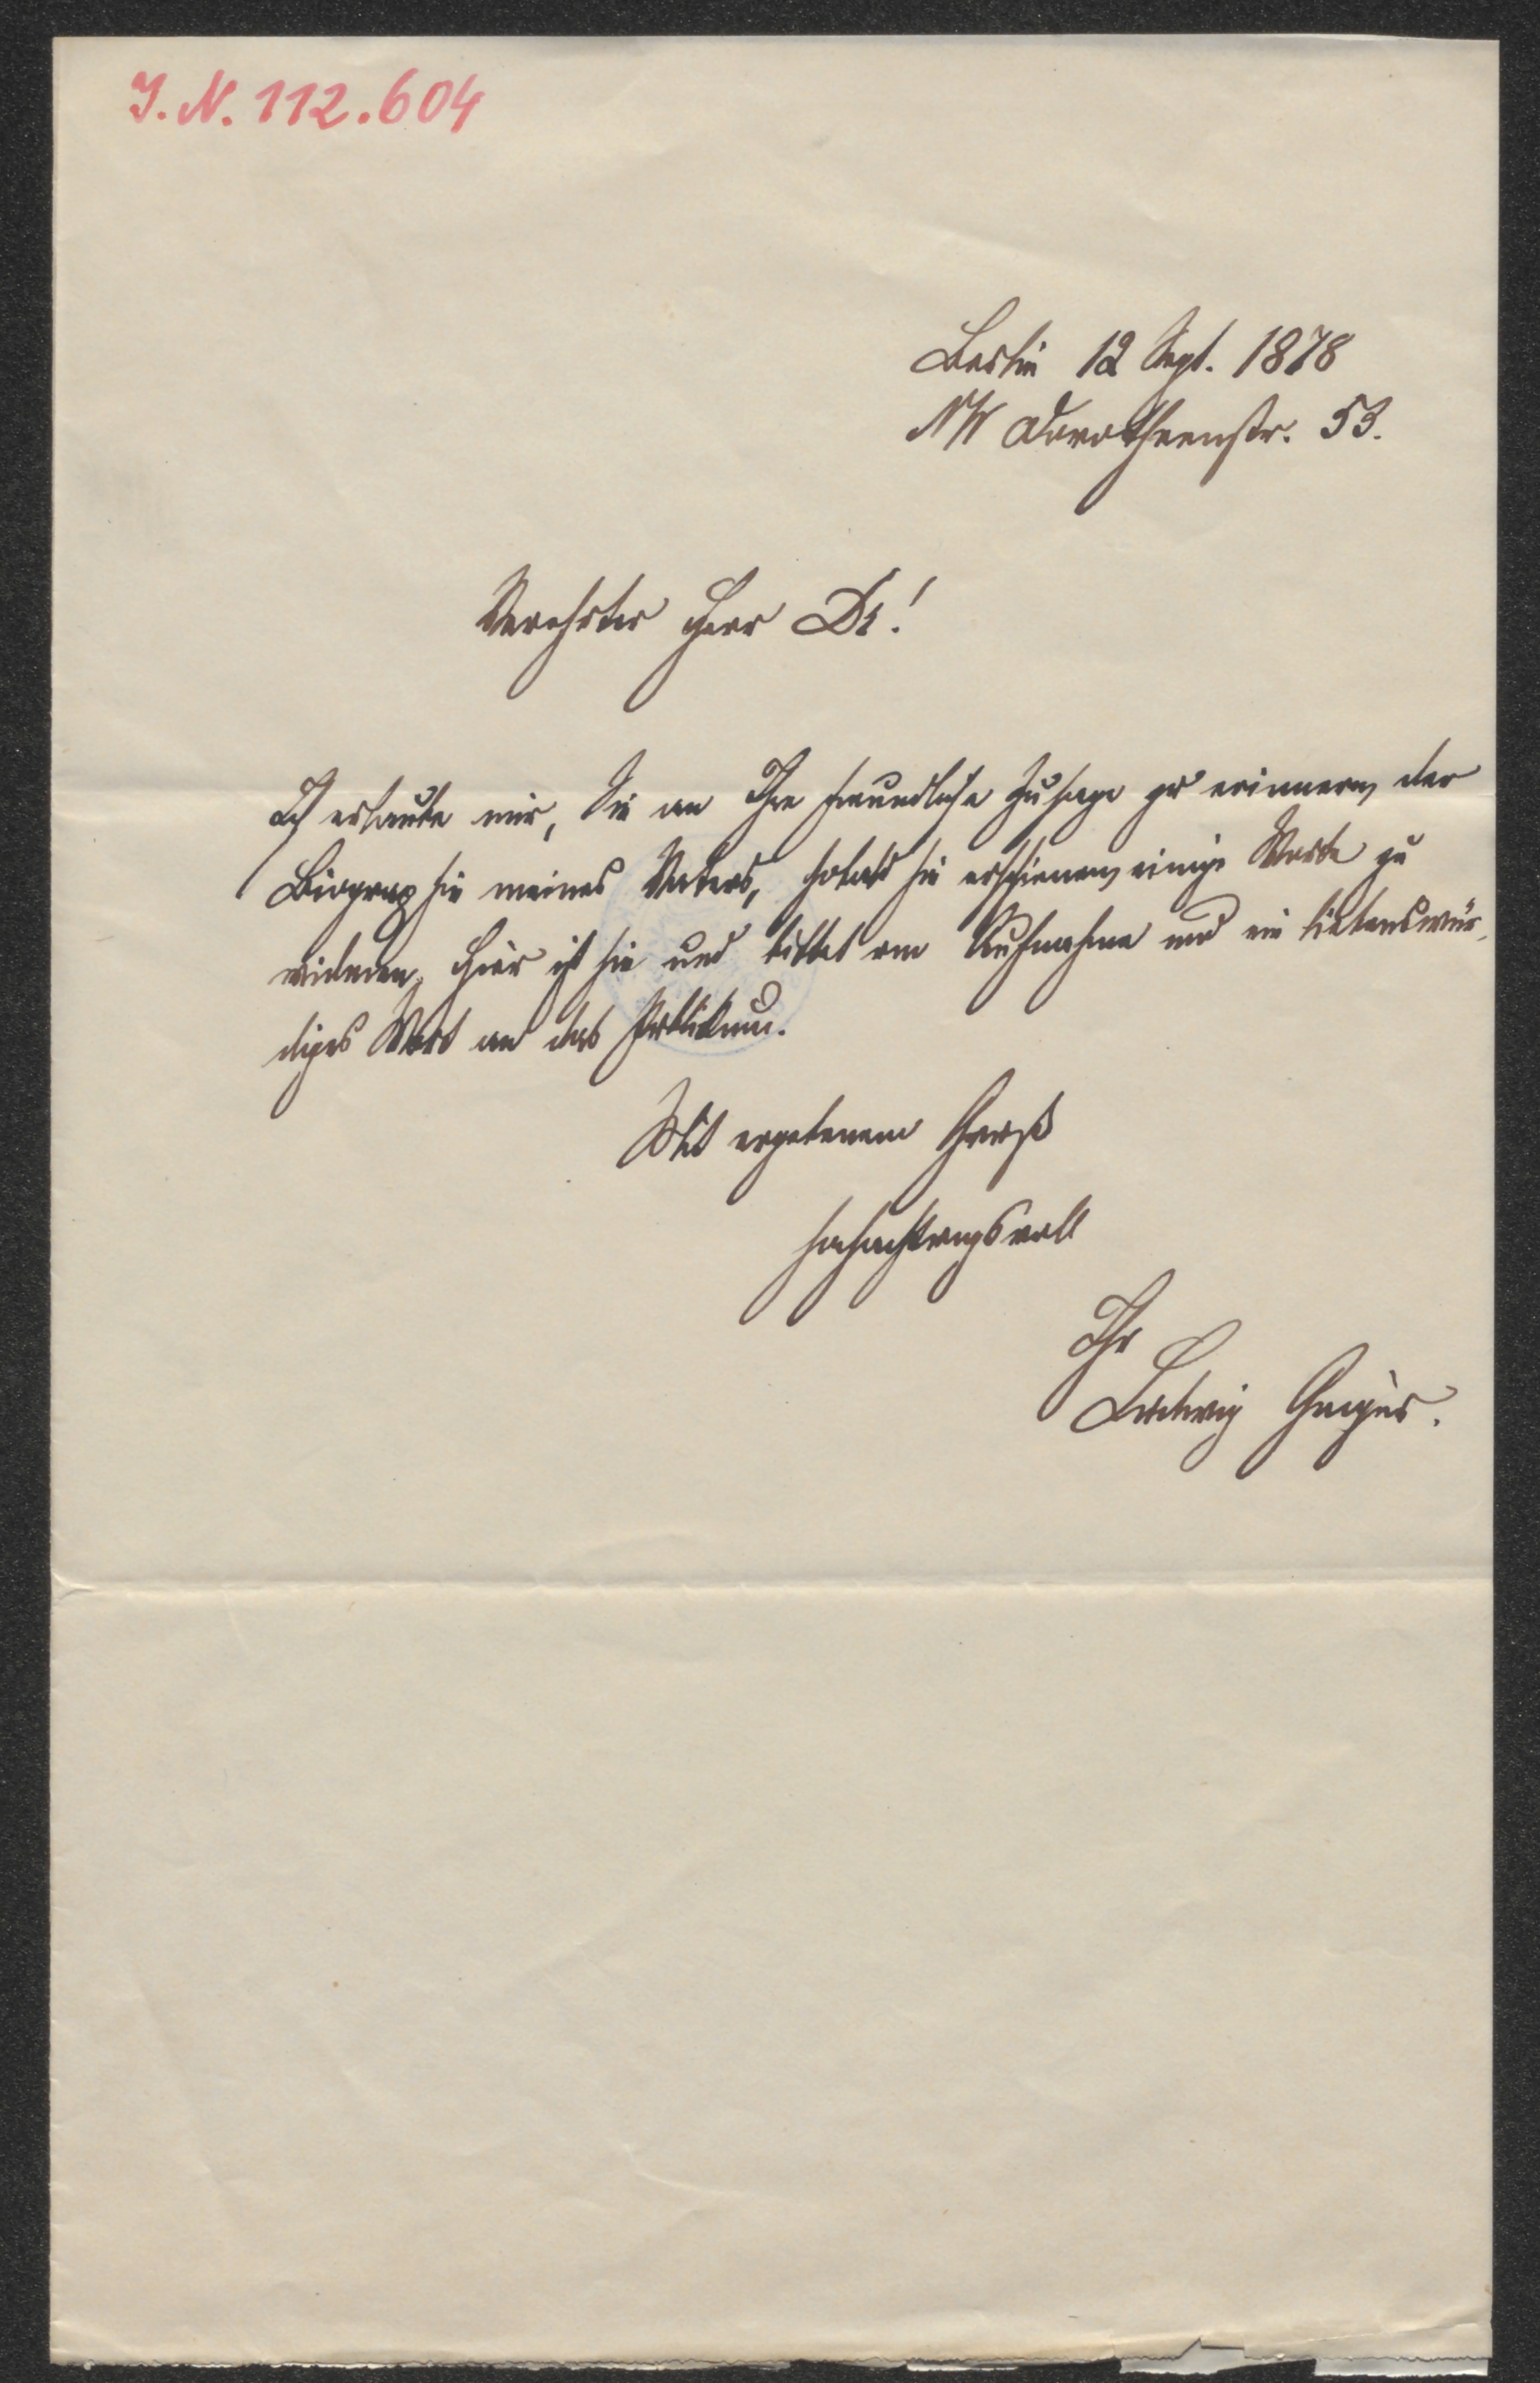 I. N. 112.604
Berlin 12 Sept. 1878
NW Dorotheenstr. 53.
Verehrter Herr Dr!
Ich erlaube mir, Sie an Ihre freundliche Zusage zu erinnern, der
Biographie meines Vaters, sobald sie erschienen, einige Worte zu
widmen. Hier ist sie und bittet um Aufnahme und ein liebenswür-
diges Wort an das Publikum.
Mit ergebenem Gruß
hochachtungsvoll
Ihr
Ludwig Geiger.